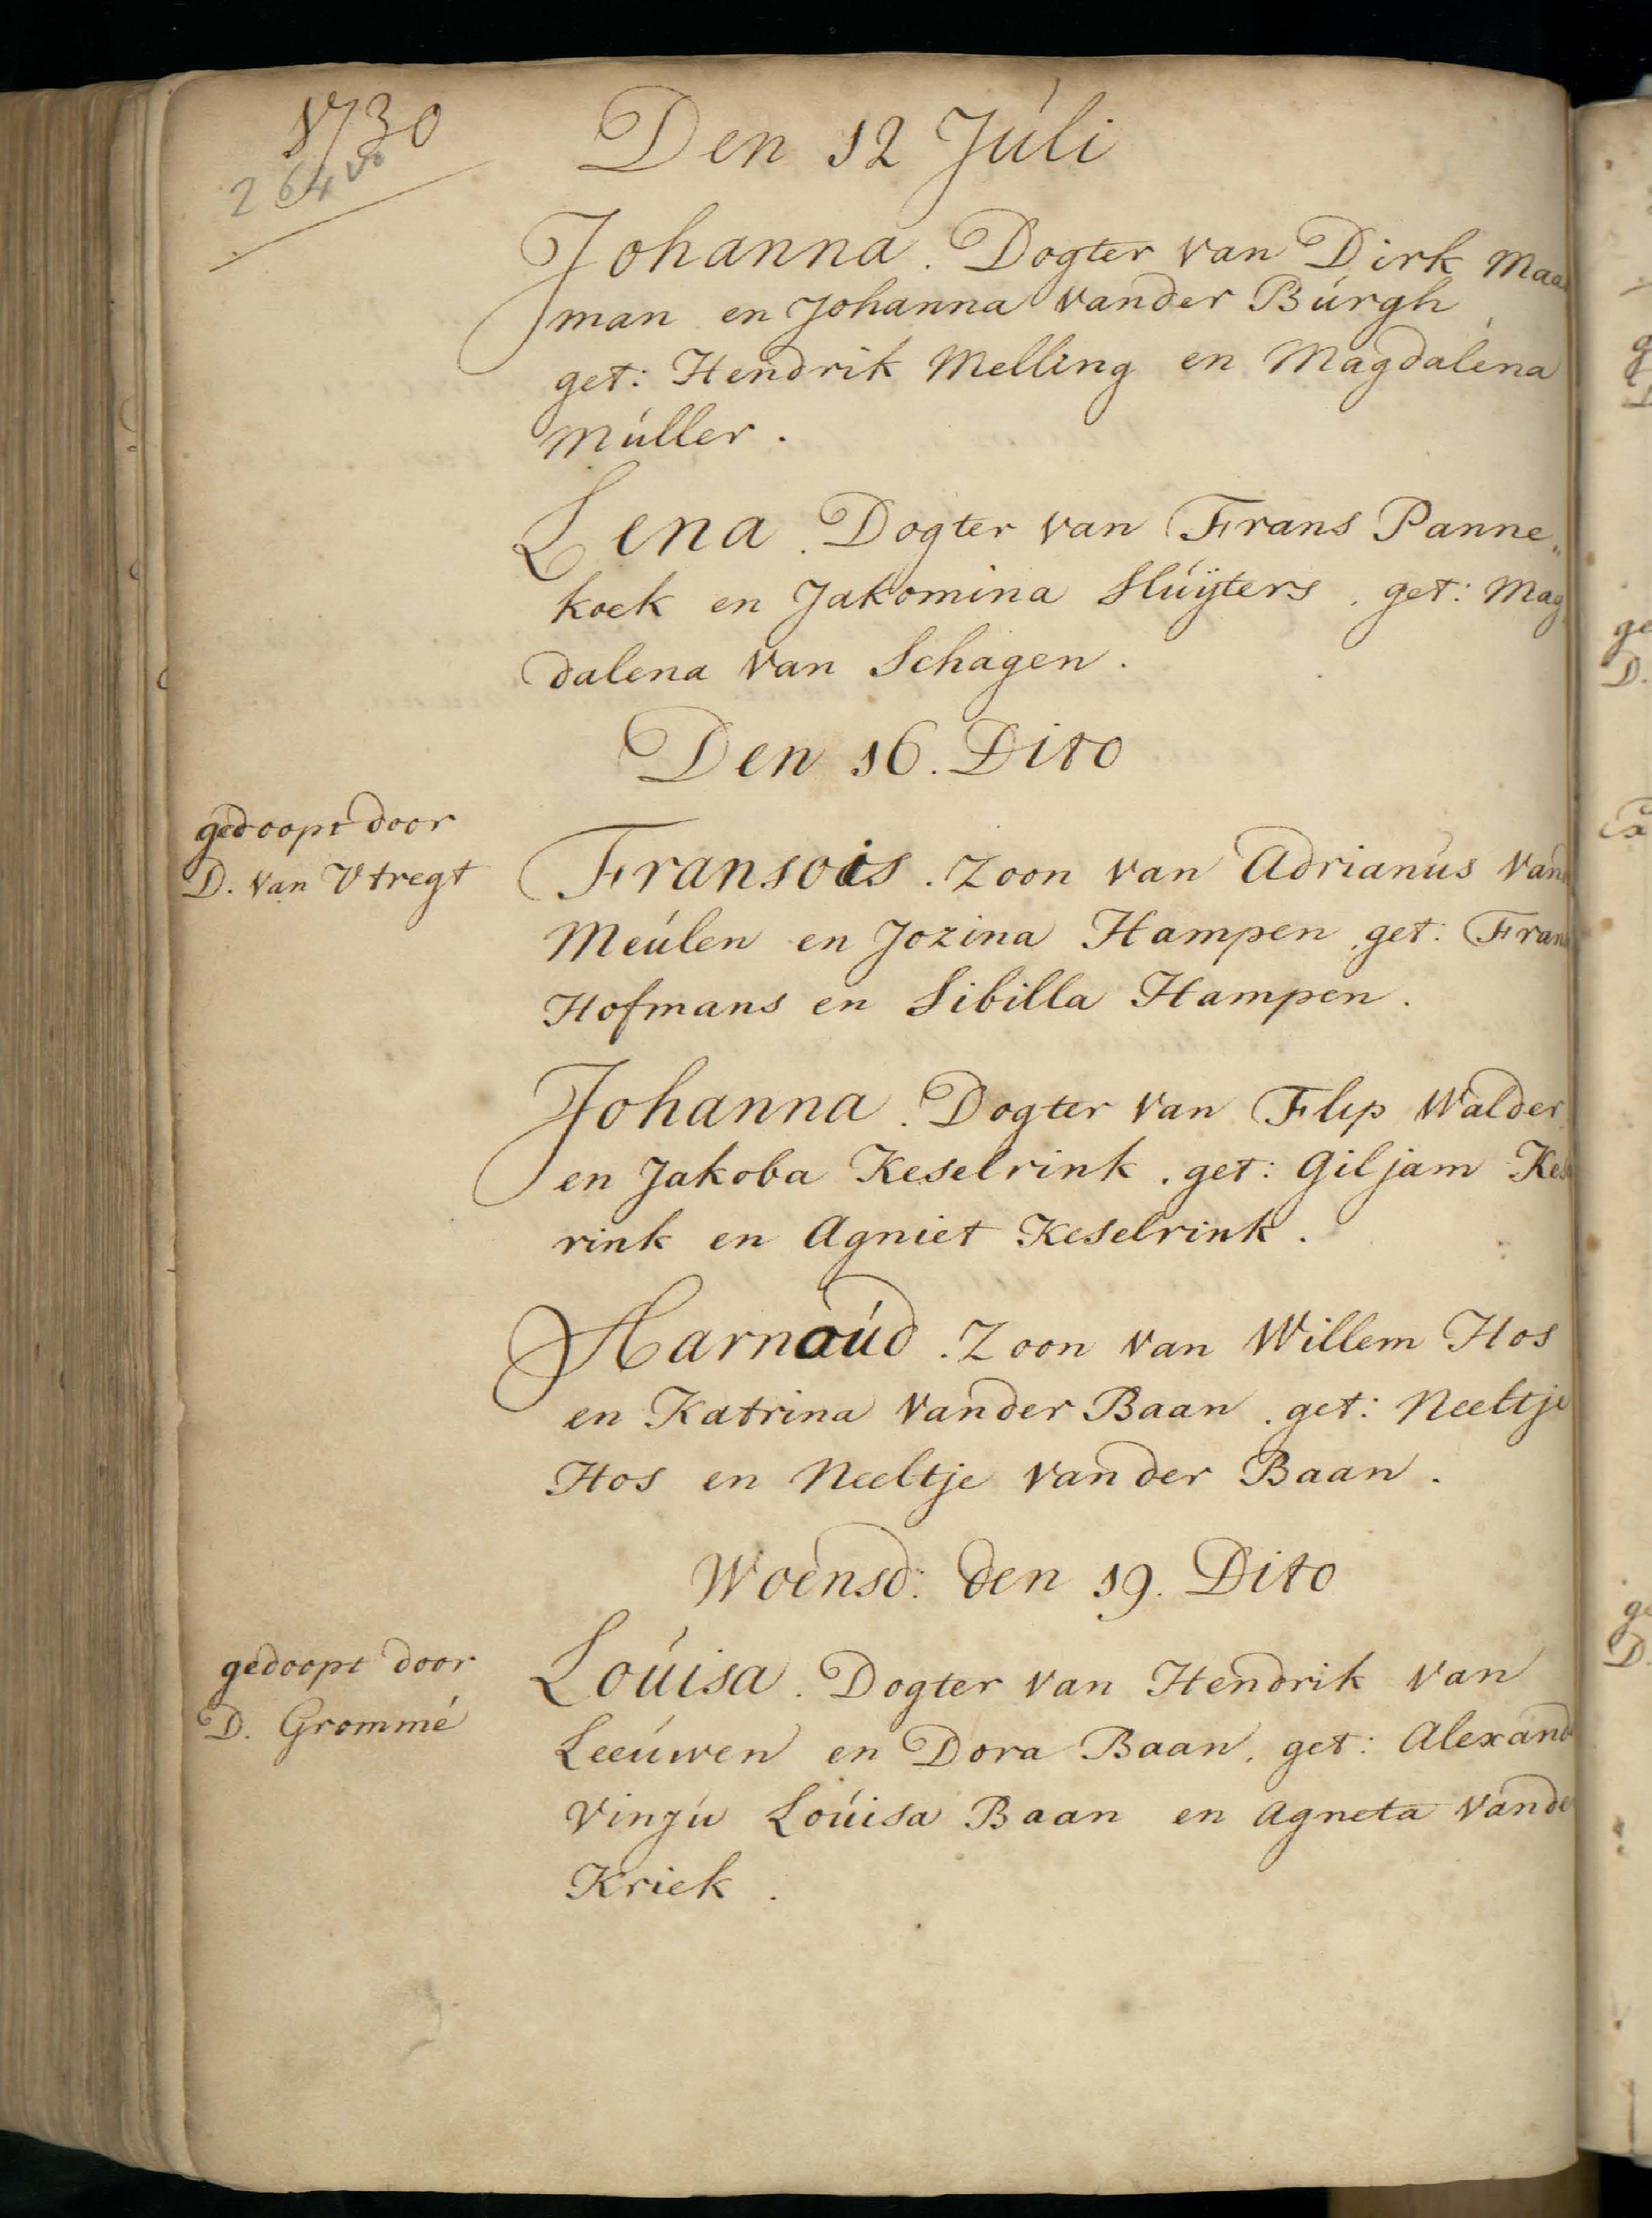 1730
264 vo
Den 12 Júli
Johanna. Dogter van Dirk Maa
man en Johanna vander Búrgh,
get: Hendrik Melling en Magdalena
Múller.
Lena. Dogter van Frans Panne„
koek en Jakomina Slúÿters. get: Mag
dalena van Schagen.
Den 16. Dito
gedoopt door
D. van Vtregt
Fransois. Zoon van Adrianús van
Meúlen en Jozina Hampen. get: Fran
Hofmans en Sibilla Hampen.
Johanna. Dogter van Flip Walder
en Jakoba Keselrink. get: Giljam Kes
rink en Agniet Keselrink.
Harnoúd. Zoon van Willem Hos
en Katrina vander Baan. get: Neeltje
Hos en Neeltje vander Baan.
Woensd: den 19. Dito
gedoopt door
D. Grommé
Loúisa. Dogter van Hendrik van
Leeúwen en Dora Baan. get: Alexand
Vinjú Loúisa Baan en Agneta vande
Kriek.